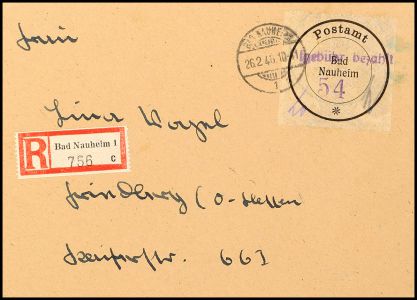 Frau
BAD NAUHEIM
26.2.46.10
1
Postamt
Gebühr bezahlt
Bad
Nauheim
54
*
Lina Vogel
R
Bad Nauheim 1
756 c
Friedberg (O-Hessen
Kaiserstr. 66I